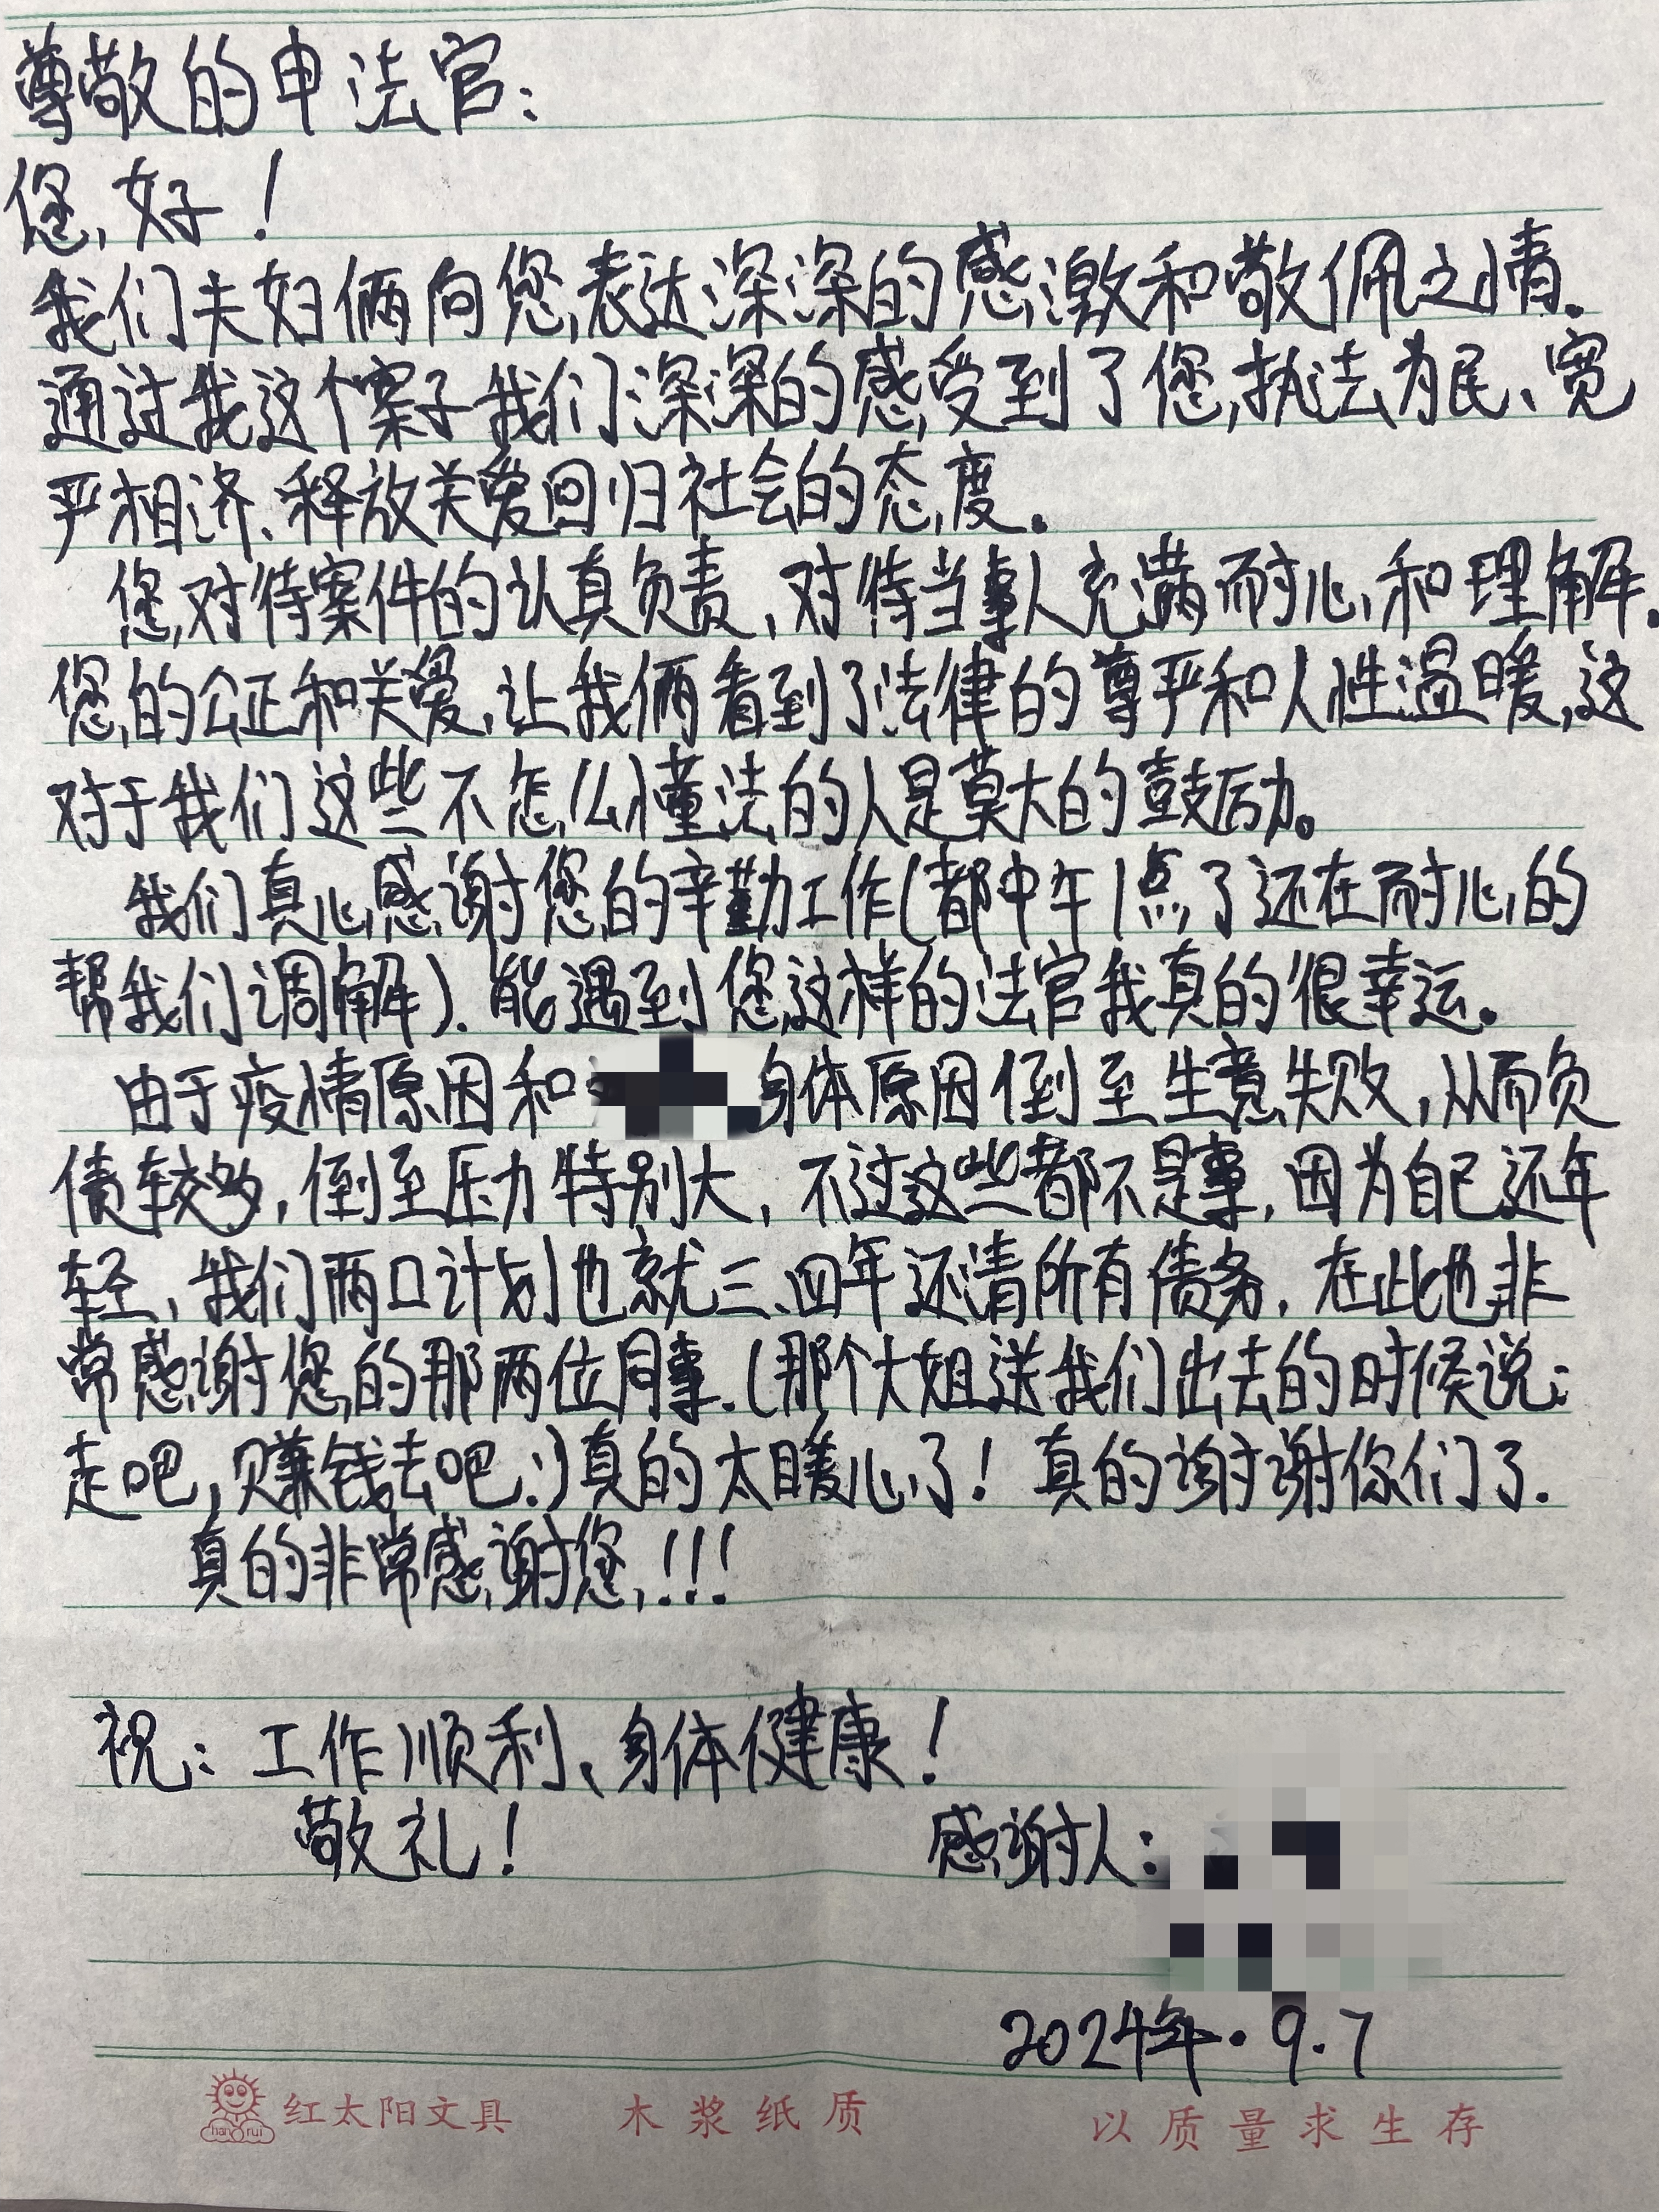 尊敬的申法官：
您好！
我们夫妇俩向您表达深深的感激和敬佩之情。
通过我这个案子我们深深的感受到了您执法为民、宽
严相济、释放关爱回归社会的态度。
您对待案件的认真负责，对待当事人充满耐心和理解.
您的公正和关爱，让我俩看到了法律的尊严和人性温暖，这
对于我们这些不怎么懂法的人是莫大的鼓励。
我们真心感谢您的辛勤工作(都中午1点了还在耐心的
帮我们调解).能遇到您这样的法官我真的很幸运。
由于疫情原因和 身体原因倒至生意失败，从而负
债较多，倒至压力特别大，不过这些都不是事，因为自己还年
轻，我们两口计划也就三、四年还清所有债务，在此也非
常感谢您的那两位同事.(那个大姐送我们出去的时候说：
走吧，赚钱去吧！)真的太暖心了！真的谢谢你们了.
真的非常感谢您！!!
祝：工作顺利、身体健康！
敬礼！
感谢人：
2024年.9.7
han rui 红太阳文具 木浆纸质 以质量求生存